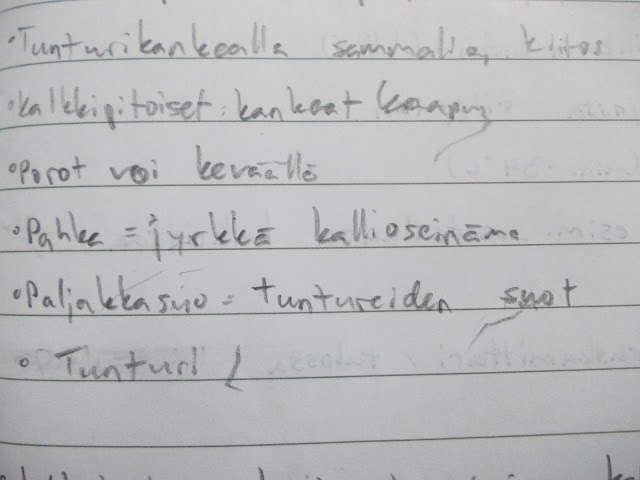 •Tunturikankealla sammalia, kiitos
•kalkkipitoiset: kankeat
•Porot voi keväällä
•Pahka = jyrkkä kallioseinämä
•Paljakkasuo = tuntureiden suot
• Tunturi